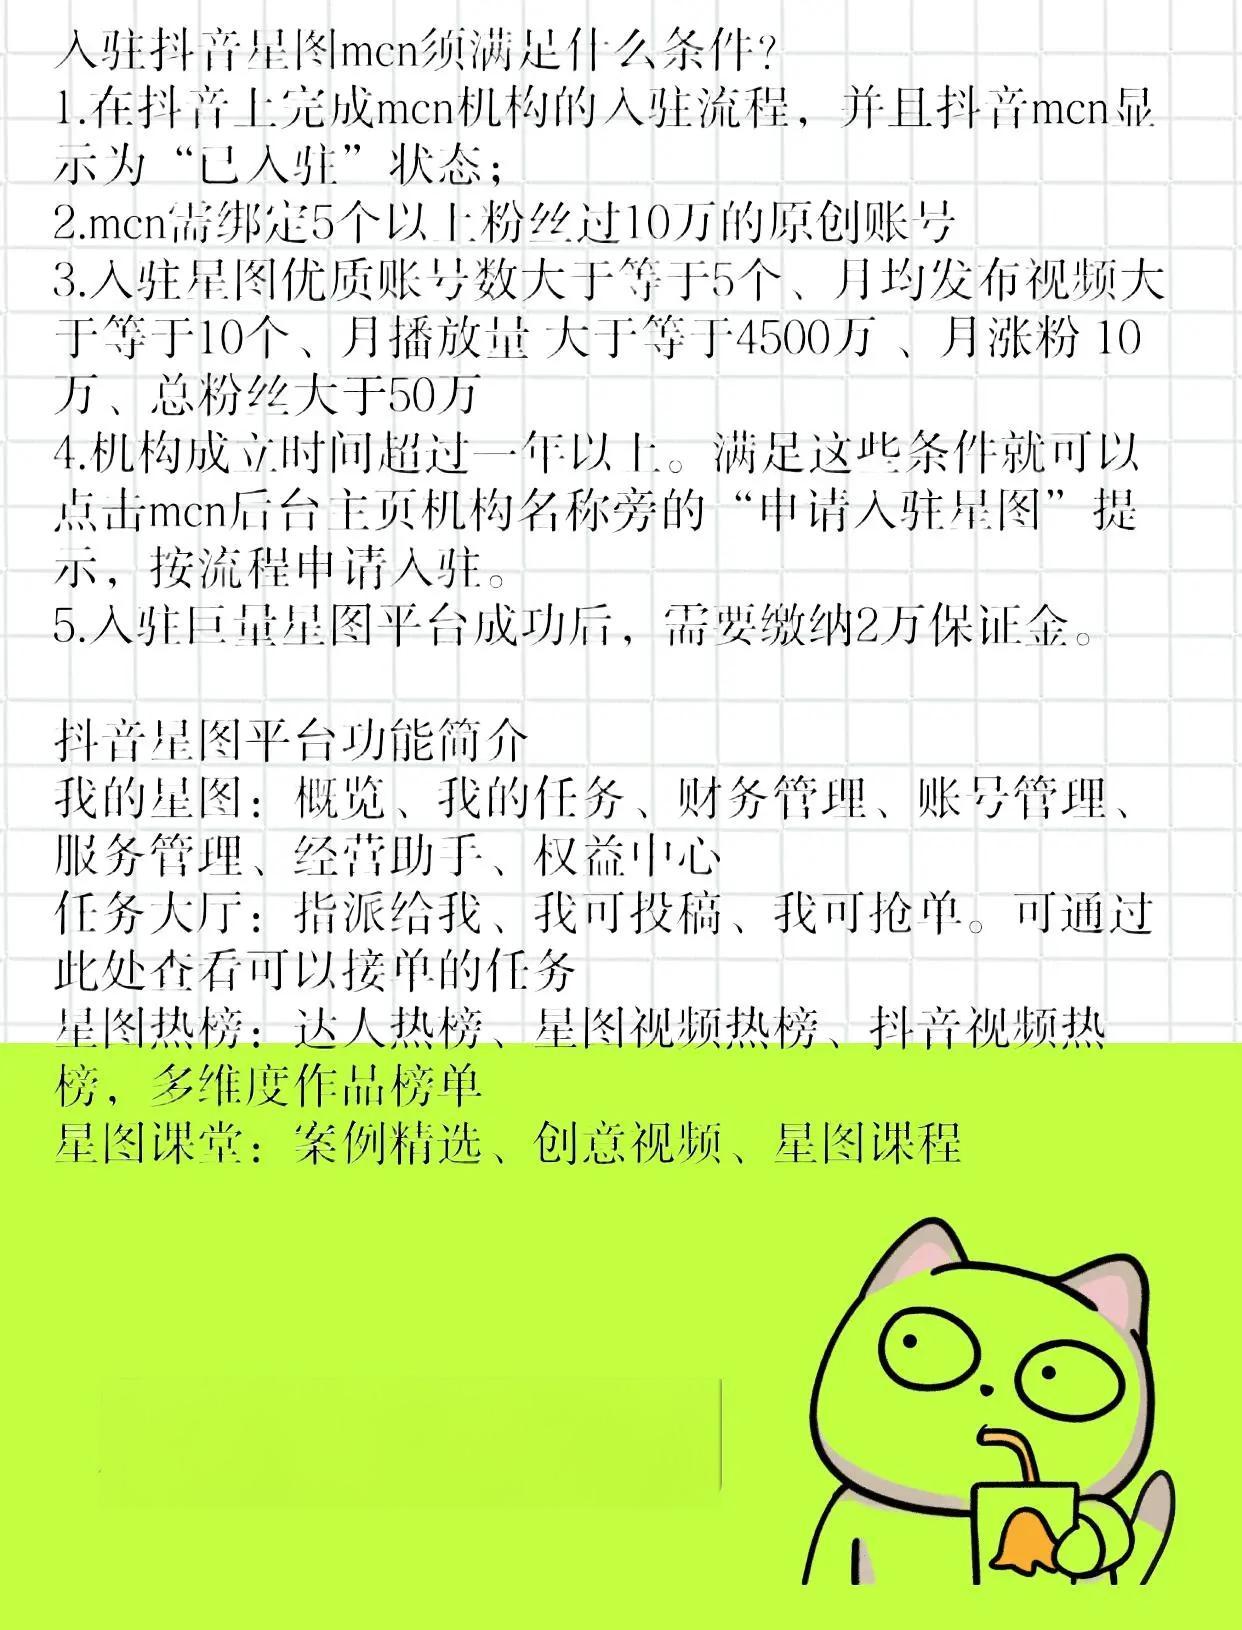 入驻抖音星图mcn须满足什么条件?
1.在抖音上完成mcn机构的入驻流程，并且抖音mcn显
示为“已入驻”状态；
2.mcn需绑定5个以上粉丝过10万的原创账号
3.入驻星图优质账号数大于等于5个、月均发布视频大
于等于10个、月播放量 大于等于4500万 、月涨粉 10
万、总粉丝大于50万
4.机构成立时间超过一年以上。满足这些条件就可以
点击mcn后台主页机构名称旁的“申请入驻星图”提
示，按流程申请入驻。
5.入驻巨量星图平台成功后，需要缴纳2万保证金。
抖音星图平台功能简介
我的星图：概览、我的任务、财务管理、账号管理、
服务管理、经营助手、权益中心
任务大厅：指派给我、我可投稿、我可抢单。可通过
此处查看可以接单的任务
星图热榜：达人热榜、星图视频热榜、抖音视频热
榜，多维度作品榜单
星图课堂：案例精选、创意视频、星图课程